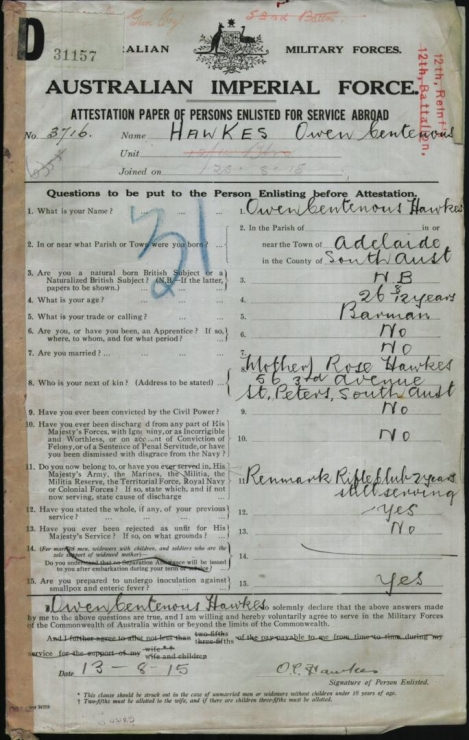 D
31157
52nd Battn
AUSTRALIAN MILITARY FORCES.
12th, Reinfts
12th, Battalion,
AUSTRALIAN IMPERIAL FORCE.
ATTESTATION PAPER OF PERSONS ENLISTED FOR SERVICE ABROAD
No. 3716. Name HAWKES Owen Centenous
Unit
Joined on 13-8-15
Questions to be put to the Person Enlisting before Attestation.
1. What is your Name? ... ... 1. Owen Centenous Hawkes
2. In or near what Parish or Town were you born? ... 2. In the Parish of in or
near the Town of Adelaide
in the County of South Aust
3. Are you a natural born British Subject or a
Naturalized British Subject? (N.B.—If the latter,
papers to be shown.) 3. N B
4. What is your age? ... 4. 26 3/12 years
5. What is your trade or calling? 5. Barman
6. Are you, or have you been, an Apprentice? If so,
where, to whom, and for what period? 6. No
7. Are you married? ... 7. No
8. Who is your next of kin? (Address to be stated) ... 8. Mother) Rose Hawkes
56 3rd Avenue
St. Peters, South Aust
9. Have you ever been convicted by the Civil Power? 9. No
10. Have you ever been discharged from any part of His
Majesty's Forces, with Ignominy, or as Incorrigible
and Worthless, or on account of Conviction of
Felony, or of a Sentence of Penal Servitude, or have
you been dismissed with disgrace from the Navy? 10. No
11. Do you now belong to, or have you ever served in, His
Majesty's Army, the Marines, the Militia, the
Militia Reserve, the Territorial Force, Royal Navy
or Colonial Forces? If so, state which, and if not
now serving, state cause of discharge 11. Renmark Rifle Club 2 years
still serving
12. Have you stated the whole, if any, of your previous
service? 12. Yes
13. Have you ever been rejected as unfit for His
Majesty's Service? If so, on what grounds? 13. No
14. (For married men, widowers with children, and soldiers who are the
sole support of widowed mother)—
Do you understand that no Separation Allowance will be issued
to you after embarkation during your term of service? 14.
15. Are you prepared to undergo inoculation against
smallpox and enteric fever? 15. Yes
31
I, Owen Centenous Hawkes do solemnly declare that the above answers made
by me to the above questions are true, and I am willing and hereby voluntarily agree to serve in the Military Forces
of the Commonwealth of Australia within or beyond the limits of the Commonwealth.
And I further agree to allot not less than two-fifths three-fifths of the pay payable to me from time to time during my
service for the support of my wife wife and children
Date 13-8-15 O.C. Hawkes
Signature of Person Enlisted.
* This clause should be struck out in the case of unmarried men or widowers without children under 18 years of age.
† Two-fifths must be allotted to the wife, and if there are children three-fifths must be allotted.